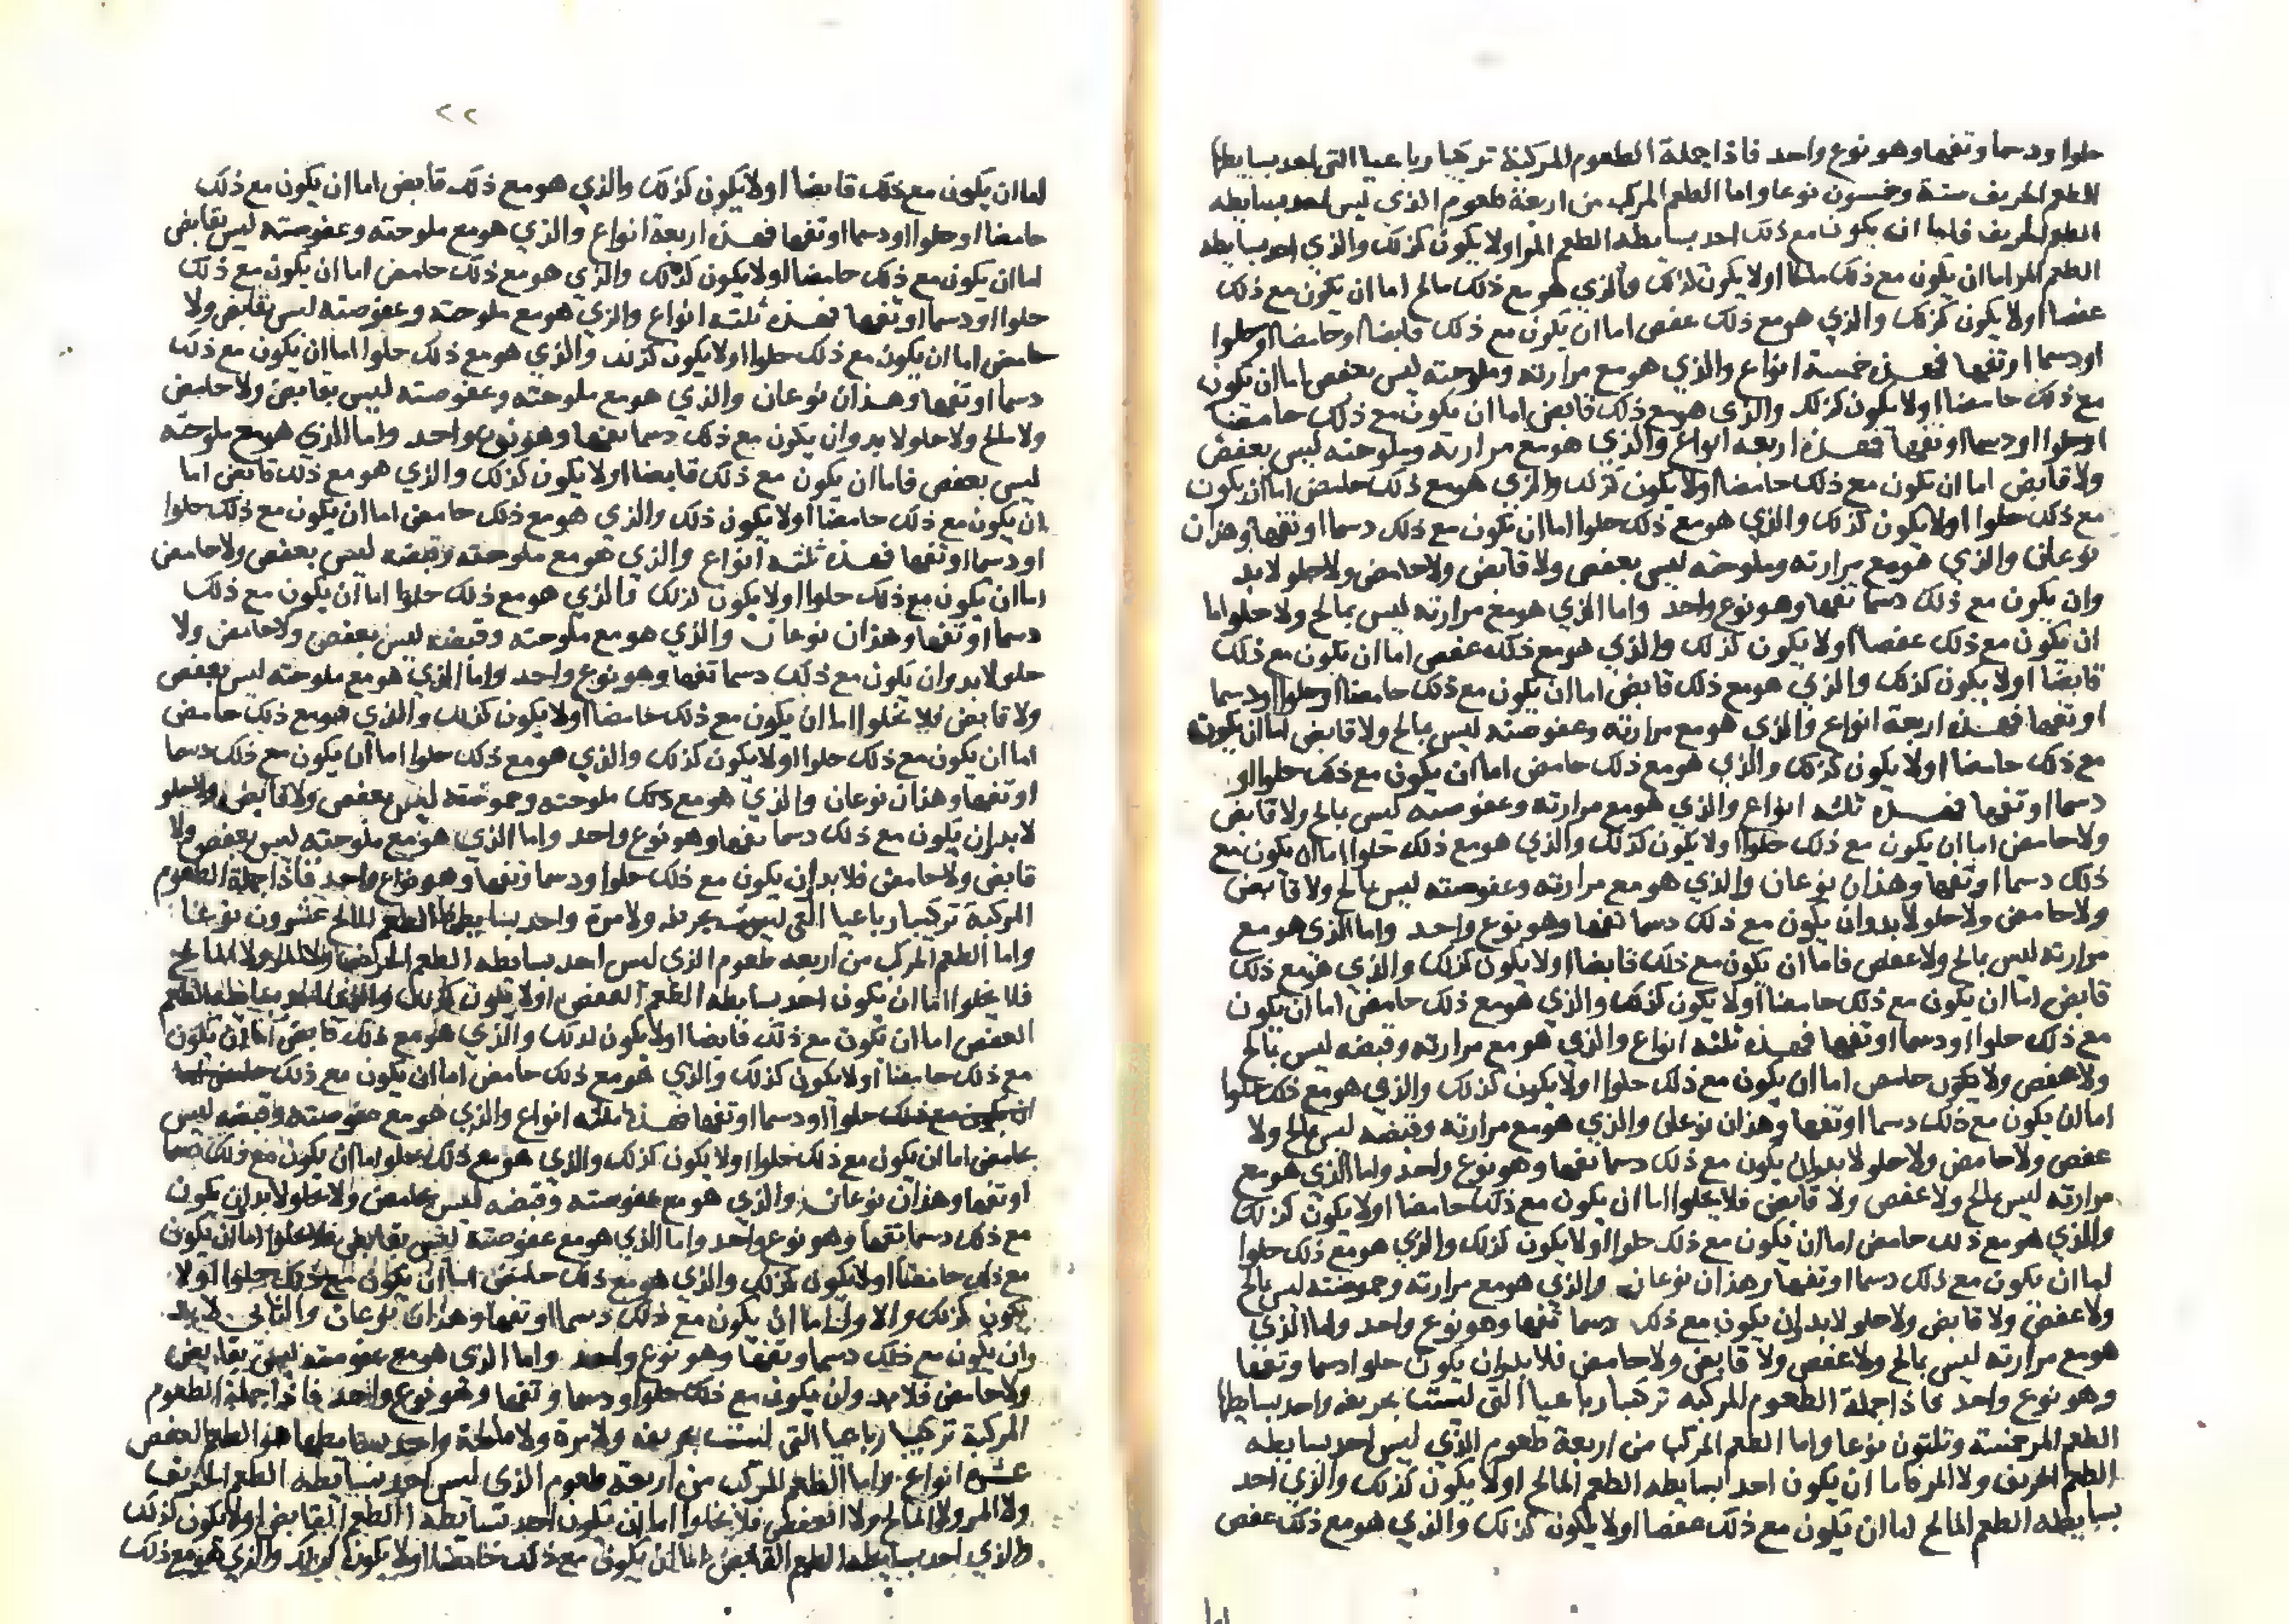 حلوا ودسما وتفها وهو نوع واحد فاذا جملة الطعوم المركبة تركيبا رباعيا التي احد بسايطها
الطعم الحريف ستة وخمسون نوعا واما الطعم المركب من اربعة طعوم الذي ليس احد بسايطه
الطعم الحريف فاما ان يكون مع ذلك احد بسايطه الطعم المر اولا يكون كذلك والذي احد بسايطه
الطعم المر اما ان يكون مع ذلك مالحا اولا يكون كذلك والذي هو مع ذلك مالح اما ان يكون مع ذلك
عفصا اولا يكون كذلك والذي هو مع ذلك عفص اما ان يكون مع ذلك قابضا او حامضا او حلوا
او دسما او تفها فهذه خمسة انواع والذي هو مع مرارته وملوحته ليس بعفص اما ان يكون
مع ذلك حامضا اولا يكون كذلك والذي هو مع ذلك قابض اما ان يكون مع ذلك حامضا
او حلوا او دسما او تفها فهذه اربعة انواع والذي هو مع مرارته وملوحته ليس بعفص
ولا قابض اما ان يكون مع ذلك حامضا اولا يكون كذلك والذي هو مع ذلك حامض اما ان يكون
مع ذلك حلوا اولا يكون كذلك والذي هو مع ذلك حلوا اما ان يكون مع ذلك دسما او تفها وهذان
نوعان والذي هو مع مرارته وملوحته ليس بعفص ولا قابض ولا حامض ولا حلو لا بد
وان يكون مع ذلك دسما تفها وهو نوع واحد واما الذي هو مع مرارته ليس بمالح ولا حلو اما
ان يكون مع ذلك عفصا اولا يكون كذلك والذي هو مع ذلك عفص اما ان يكون مع ذلك
قابضا اولا يكون كذلك والذي هو مع ذلك قابض اما ان يكون مع ذلك حامضا او حلوا او دسما
او تفها فهذه اربعة انواع والذي هو مع مرارته وعفوصته ليس بمالح ولا قابض اما ان يكون
مع ذلك حامضا اولا يكون كذلك والذي هو مع ذلك حامض اما ان يكون مع ذلك حلوا او
دسما او تفها فهذه ثلثه انواع والذي هو مع مرارته وعفوصته ليس بمالح ولا قابض
ولا حامض اما ان يكون مع ذلك حلوا اولا يكون كذلك والذي هو مع ذلك حلوا اما ان يكون مع
ذلك دسما او تفها وهذان نوعان والذي هو مع مرارته وعفوصته ليس بمالح ولا قابض
ولا حامض ولا حلو لا بد وان يكون مع ذلك دسما تفها وهو نوع واحد واما الذي هو مع
مرارته ليس بمالح ولا عفص فاما ان يكون مع ذلك قابضا اولا يكون كذلك والذي هو مع ذلك
قابض اما ان يكون مع ذلك حامضا اولا يكون كذلك والذي هو مع ذلك حامض اما ان يكون
مع ذلك حلوا او دسما او تفها فهذه ثلثه انواع والذي هو مع مرارته وقبضه ليس بمالح
ولا عفص ولا حامض اما ان يكون مع ذلك حلوا اولا يكون كذلك والذي هو مع ذلك حلوا
اما ان يكون مع ذلك دسما او تفها وهذان نوعان والذي هو مع مرارته وقبضه ليس بمالح ولا
عفص ولا حامض ولا حلو لا بد وان يكون مع ذلك دسما تفها وهو نوع واحد واما الذي هو مع
مرارته ليس بمالح ولا عفص ولا قابض فلا يخلوا اما ان يكون مع ذلك حامضا اولا يكون كذلك
والذي هو مع ذلك حامض اما ان يكون مع ذلك حلوا اولا يكون كذلك والذي هو مع ذلك حلوا
اما ان يكون مع ذلك دسما او تفها وهذان نوعان والذي هو مع مرارته وحموضته ليس بمالح
ولا عفص ولا قابض ولا حلو لا بد وان يكون مع ذلك دسما تفها وهو نوع واحد واما الذي
هو مع مرارته ليس بمالح ولا عفص ولا قابض ولا حامض فلا بد وان يكون حلوا دسما وتفها
وهو نوع واحد فاذا جملة الطعوم المركبه تركيبا رباعيا التي ليست بحريفه واحد بسايطها
الطعم المر خمسة وثلثون نوعا واما الطعم المركب من اربعة طعوم الذي ليس احد بسايطه
الطعم الحريف ولا المر فاما ان يكون احد بسايطه الطعم المالح اولا يكون كذلك والذي احد
بسايطه الطعم المالح اما ان يكون مع ذلك عفصا اولا يكون كذلك والذي هو مع ذلك عفص
اما
٢٢
اما ان يكون مع ذلك قابضا اولا يكون كذلك والذي هو مع ذلك قابض اما ان يكون مع ذلك
حامضا او حلوا او دسما او تفها فهذه اربعة انواع والذي هو مع ملوحته وعفوصته ليس بقابض
اما ان يكون مع ذلك حامضا اولا يكون كذلك والذي هو مع ذلك حامض اما ان يكون مع ذلك
حلوا او دسما او تفها فهذه ثلثه انواع والذي هو مع ملوحته وعفوصته ليس بقابض ولا
حامض اما ان يكون مع ذلك حلوا اولا يكون كذلك والذي هو مع ذلك حلوا اما ان يكون مع ذلك
دسما او تفها وهذان نوعان والذي هو مع ملوحته وعفوصته ليس بقابض ولا حامض
ولا مالح ولا حلو لا بد وان يكون مع ذلك دسما تفها وهو نوع واحد واما الذي هو مع ملوحته
ليس بعفص فاما ان يكون مع ذلك قابضا اولا يكون كذلك والذي هو مع ذلك قابض اما
ان يكون مع ذلك حامضا اولا يكون ذلك والذي هو مع ذلك حامض اما ان يكون مع ذلك حلوا
او دسما او تفها فهذه ثلثه انواع والذي هو مع ملوحته وقبضه ليس بعفص ولا حامض
اما ان يكون مع ذلك حلوا اولا يكون كذلك فالذي هو مع ذلك حلوا اما ان يكون مع ذلك
دسما او تفها وهذان نوعان والذي هو مع ملوحته وقبضه ليس بعفص ولا حامض ولا
حلو لا بد وان يكون مع ذلك دسما تفها وهو نوع واحد واما الذي هو مع ملوحته ليس بعفص
ولا قابض فلا يخلوا اما ان يكون مع ذلك حامضا اولا يكون كذلك والذي هو مع ذلك حامض
اما ان يكون مع ذلك حلوا اولا يكون كذلك والذي هو مع ذلك حلوا اما ان يكون مع ذلك دسما
او تفها وهذان نوعان والذي هو مع ذلك ملوحته وحموضته ليس بعفص ولا قابض ولا حلو
لا بد ان يكون مع ذلك دسما تفها وهو نوع واحد واما الذي هو مع ملوحته ليس بعفص ولا
قابض ولا حامض فلا بد ان يكون مع ذلك حلوا ودسما وتفها وهو نوع واحد فاذا جملة الطعوم
المركبة تركيبا رباعيا التي ليست بحريفه ولا مرة واحد بسايطها الطعم المالح عشرون نوعا
واما الطعم المركب من اربعه طعوم الذي ليس احد بسايطه الطعم الحريف ولا المر ولا المالح
فلا يخلوا اما ان يكون احد بسايطه الطعم العفص اولا يكون كذلك والذي احد بسايطه الطعم
العفص اما ان يكون مع ذلك قابضا اولا يكون كذلك والذي هو مع ذلك قابض اما ان يكون
مع ذلك حامضا اولا يكون كذلك والذي هو مع ذلك حامض اما ان يكون مع ذلك
حلوا او دسما او تفها فهذه ثلثه انواع والذي هو مع عفوصته وقبضه ليس
بحامض اما ان يكون مع ذلك حلوا اولا يكون كذلك والذي هو مع ذلك حلو اما ان يكون مع ذلك دسما
او تفها وهذان نوعان والذي هو مع عفوصته وقبضه ليس بحامض ولا حلو لا بد ان يكون
مع ذلك دسما تفها وهو نوع واحد واما الذي هو مع عفوصته ليس بقابض فلا يخلوا اما ان يكون
مع ذلك حامضا اولا يكون كذلك والذي هو مع ذلك حامض اما ان يكون مع ذلك حلوا اولا
يكون كذلك والاول اما ان يكون مع ذلك دسما او تفها وهذان نوعان والثاني لا بد
وان يكون مع ذلك دسما وتفها وهو نوع واحد واما الذي هو مع عفوصته ليس بقابض
ولا حامض فلا بد وان يكون مع ذلك حلوا ودسما وتفها وهو نوع واحد فاذا جملة الطعوم
المركبة تركيبا رباعيا التي ليست بحريفه ولا مرة ولا مالحة واحد بسايطها هو الطعم العفص
عشرة انواع واما الطعم المركب من اربعة طعوم الذي ليس احد بسايطه الطعم الحريف
ولا المر ولا المالح ولا العفص فلا يخلوا اما ان يكون احد بسايطه الطعم القابض اولا يكون كذلك
والذي احد بسايطه الطعم القابض اما ان يكون مع ذلك حامضا اولا يكون كذلك والذي هو مع ذلك